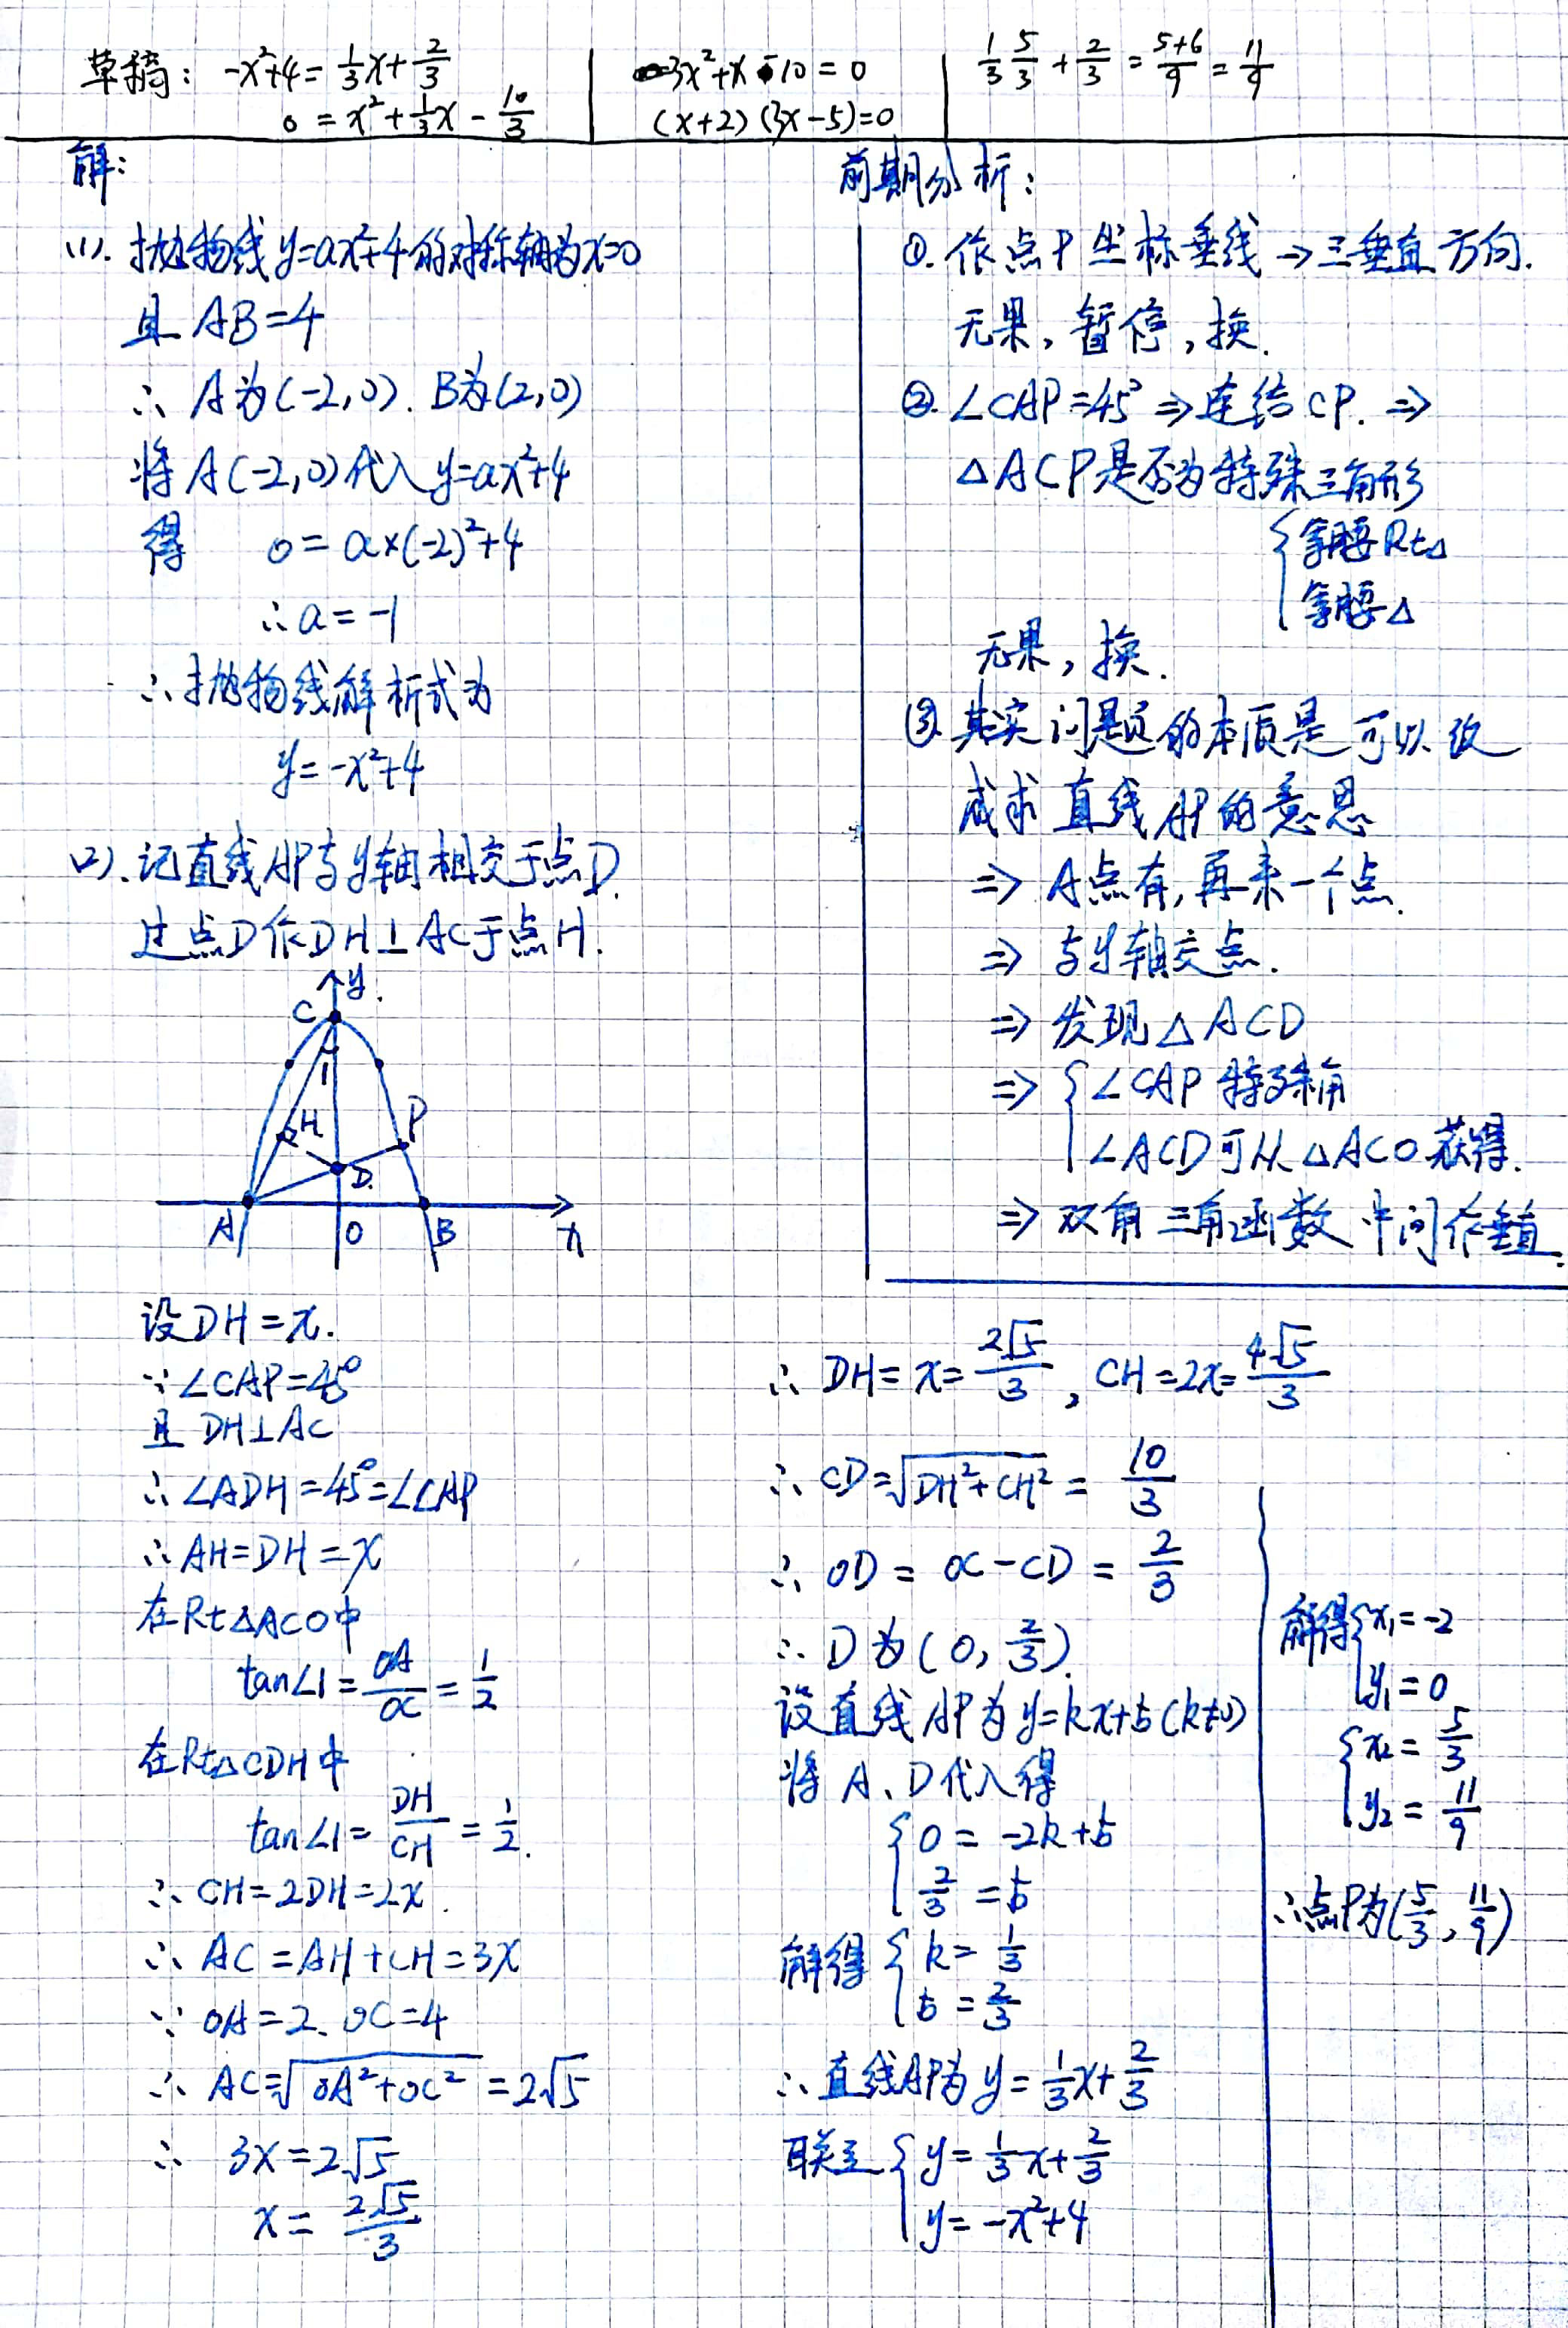 草稿: -x²+4=1/3x+2/3
0=x²+1/3x-10/3
3x²+x-10=0
(x+2)(3x-5)=0
1/3 5/3+2/3=5+6/9=11/9
解:
(1).抛物线y=ax²+4的对称轴为x=0
且AB=4
∴A为(-2,0).B为(2,0)
将A(-2,0)代入y=ax²+4
得 0=a×(-2)²+4
∴a=-1
∴抛物线解析式为
y=-x²+4
(2).记直线AP与y轴相交于点D.
过点D作DH⊥AC于点H.
y
C
1
H
P
D.
A
O
B
x
前期分析:
①.作点P坐标垂线→三垂直方向.
无果,暂停,换.
②.∠CAP=45°⇒连结CP.⇒
△ACP是否为特殊三角形
{等腰Rt△
等腰△
无果,换.
③.其实问题的本质是可以改
成求直线AP的意思
⇒A点有,再来一个点.
⇒与y轴交点.
⇒发现△ACD
⇒{∠CAP特殊角
∠ACD可从△ACO获得.
⇒双角三角函数中间作垂直.
设DH=x.
∵∠CAP=45°
且DH⊥AC
∴∠ADH=45°=∠CAP
∴AH=DH=x
在Rt△ACO中
tan∠1=OA/OC=1/2
在Rt△CDH中
tan∠1=DH/CH=1/2.
∴CH=2DH=2x.
∴AC=AH+CH=3x
∵OA=2.OC=4
∴AC=√(OA²+OC²)=2√5
∴3x=2√5
x=2√5/3
∴DH=x=2√5/3,CH=2x=4√5/3
∴CD=√(DH²+CH²)=10/3
∴OD=OC-CD=2/3
∴D为(0,2/3).
设直线AP为y=kx+b(k≠0)
将A、D代入得
{0=-2k+b
2/3=b
解得{k=1/3
b=2/3
∴直线AP为y=1/3x+2/3
联立{y=1/3x+2/3
y=-x²+4
解得{x₁=-2
y₁=0
{x₂=5/3
y₂=11/9
∴点P为(5/3,11/9)